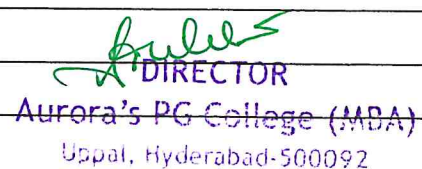 DIRECTOR
Aurora's PG College (MBA)
Uppal, Hyderabad-500092